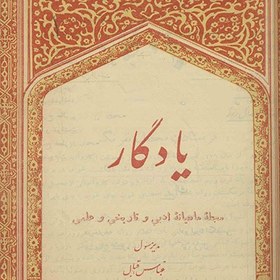 یادگار
مجلهٔ ماهیانهٔ ادبی و تاریخی و علمی
مدیر مسئول
عباس اقبال